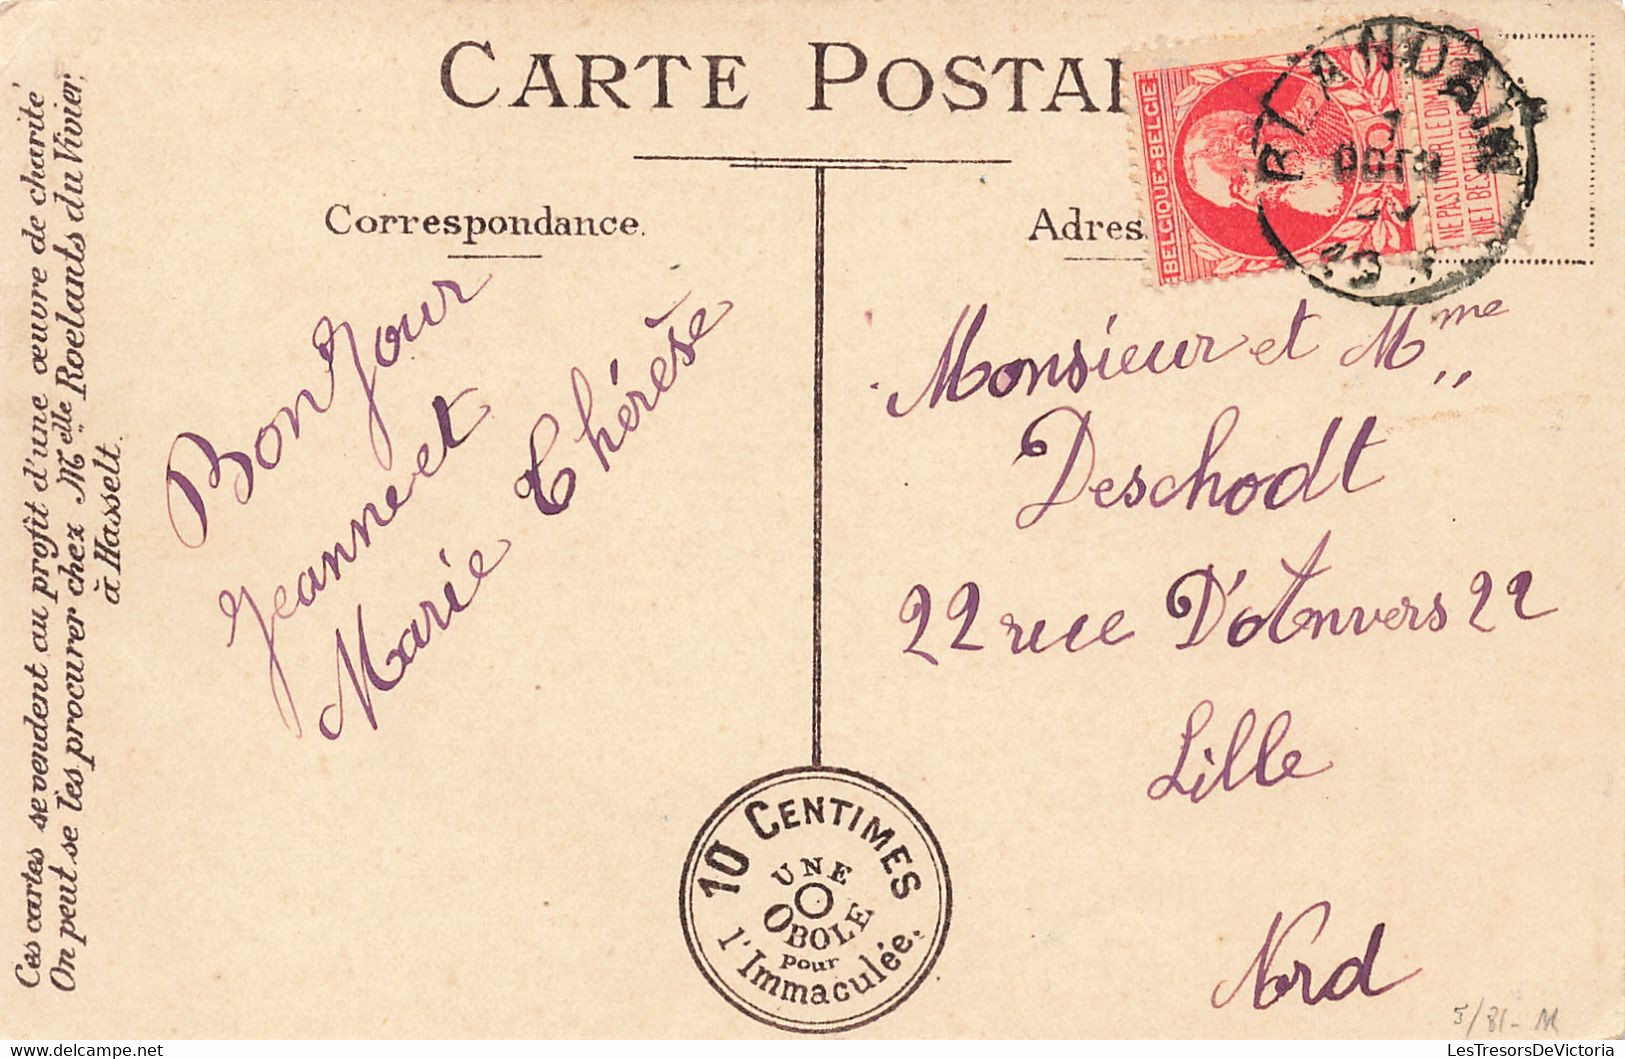 CARTE POSTAL
Correspondance.
Adres
BELGIQUE-BELGIË
NE PAS LIVRER LE DIMANCHE
NIET BESTELLEN OP ZONDAG
BLANDAIN
Ces cartes se vendent au profit d'une œuvre de charité
On peut se les procurer chez Melle Roelants du Vivier,
à Hasselt.
Bonjour
Jeanne et
Marie Thérèse
Monsieur et Mme
Deschodt
22 rue D'Anvers 22
Lille
Nord
10 CENTIMES
UNE
OBOLE
pour
l'Immaculée.
5/81-M
LesTresorsDeVictoria